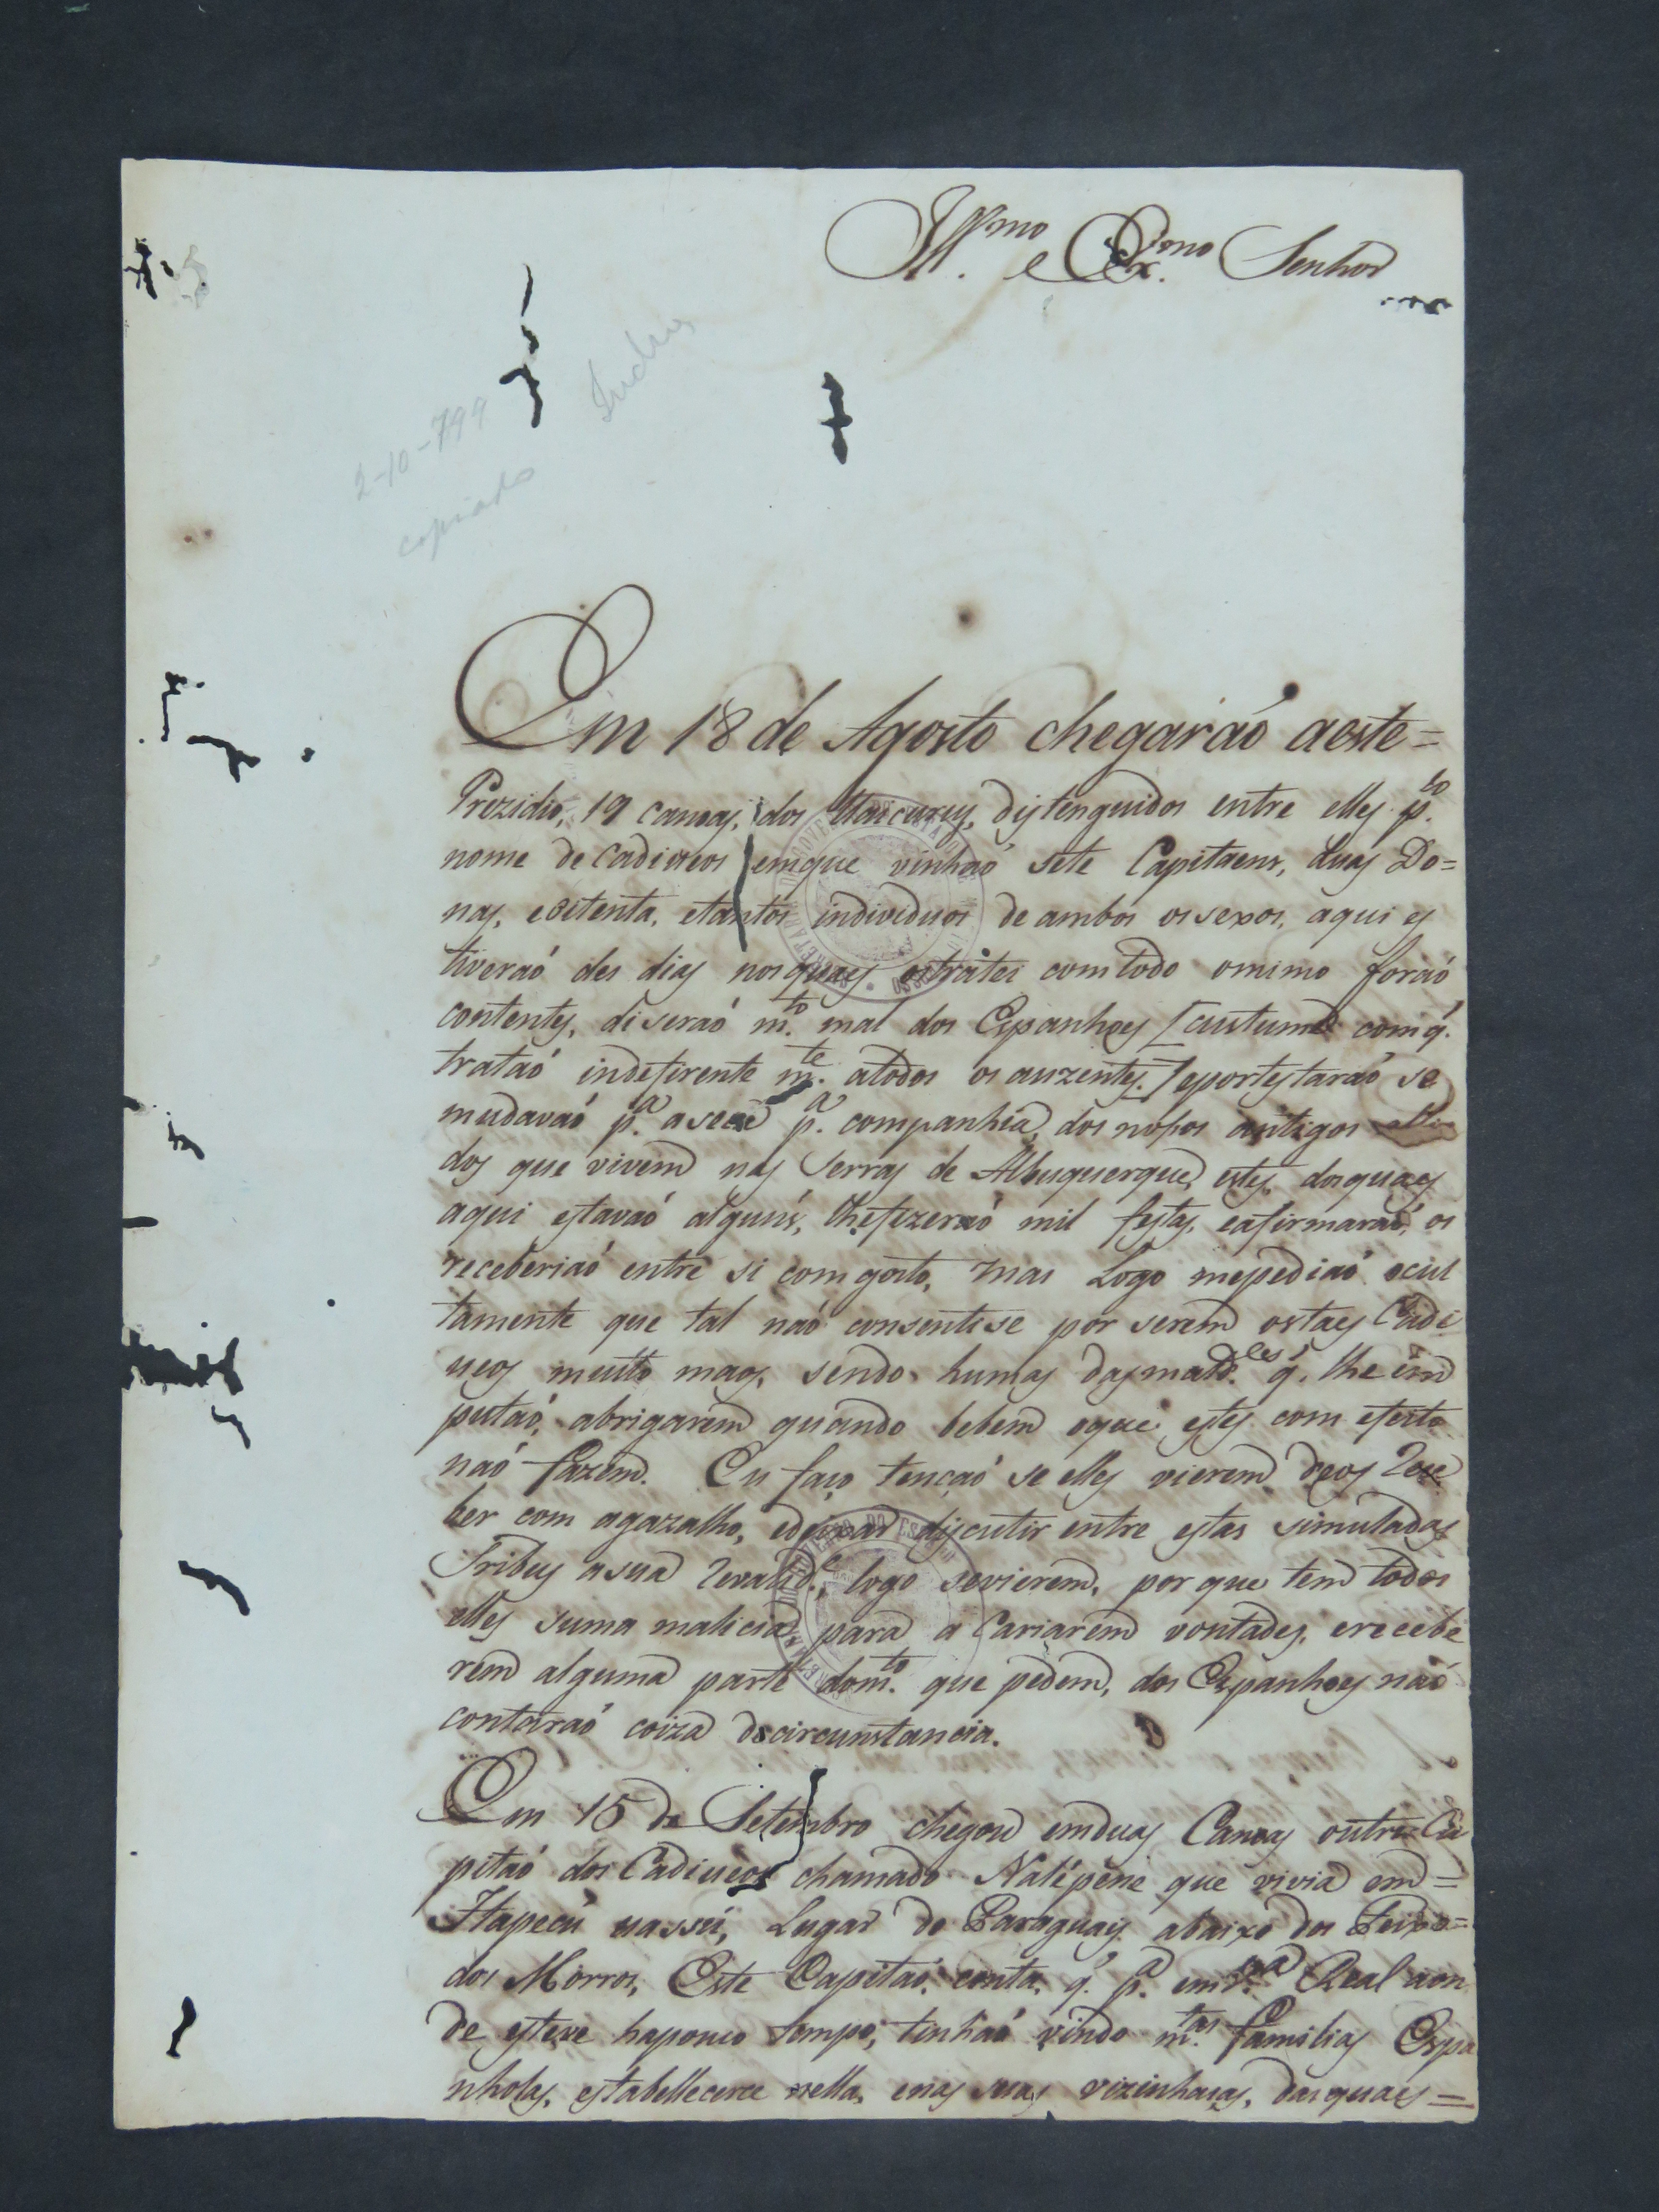 Ill.mo e Ex.mo Senhor
Indios
2-10-799
copiado
Em 18 de Agosto chegaraó aeste=
Prezidio, 19 canoas, dos Uaicurus, distenguidos entre elles p.lo
nome de Cadiueos emque vinhaó sete Capitaens, duas Do=
nas, esetenta, etantos individuos de ambos os sexos, aqui es
tiveraó des dias nos quaes os tratei comtodo omimo foraó
contentes, diseraó m.to mal dos Espanhoes [custume com q.
trataó indeferente m.te atodos os auzentes.] eportestaraó se
mudavaó p.a p.a companhia, dos nosos antigos alia
dos que vivem nas Serras de Albuquerque, estes, dosquaes
aqui estavaó alguns, lhefizeraó mil festas, eafirmaraó, os
receberiaó entre si comgosto, mas Logo mepediaó ocul
tamente que tal naó consentise por serem ostaes Cadi
ueos muito maos, sendo humas dasmald.es q. lhe im
putaó, abrigarem quando bebem oque estes com efeito
naó fazem. Eu faço tençaó se elles vierem deos Rece
ber com agazalho, edeixar discutir entre estas simuladas
Tribus asua Revalid.e, logo sevierem, por que tem todos
elles suma malicia para a Cariarem vontades, erecebe
rem alguma parte dom.to que pedem, dos Espanhoes naó
contaraó coiza decircunstancia.
Em 15 de Setembro chegou emduas Canoas outro Ca
pitaó dos Cadiueos chamado Natépene que vivia em=
Itapecú uassú, Lugar do Paraguay abaixo dos Feixo=
dos Morros, Este Capitaó conta, q. p.a em V.a Real aon
de esteve hapouco tempo, tinhaó vindo m.tas familias Espa
nholas, estabellecerce nella, enas suas vizinhaças, dasquaes=
SECRETARIA DO GOVERNO DO ESTADO